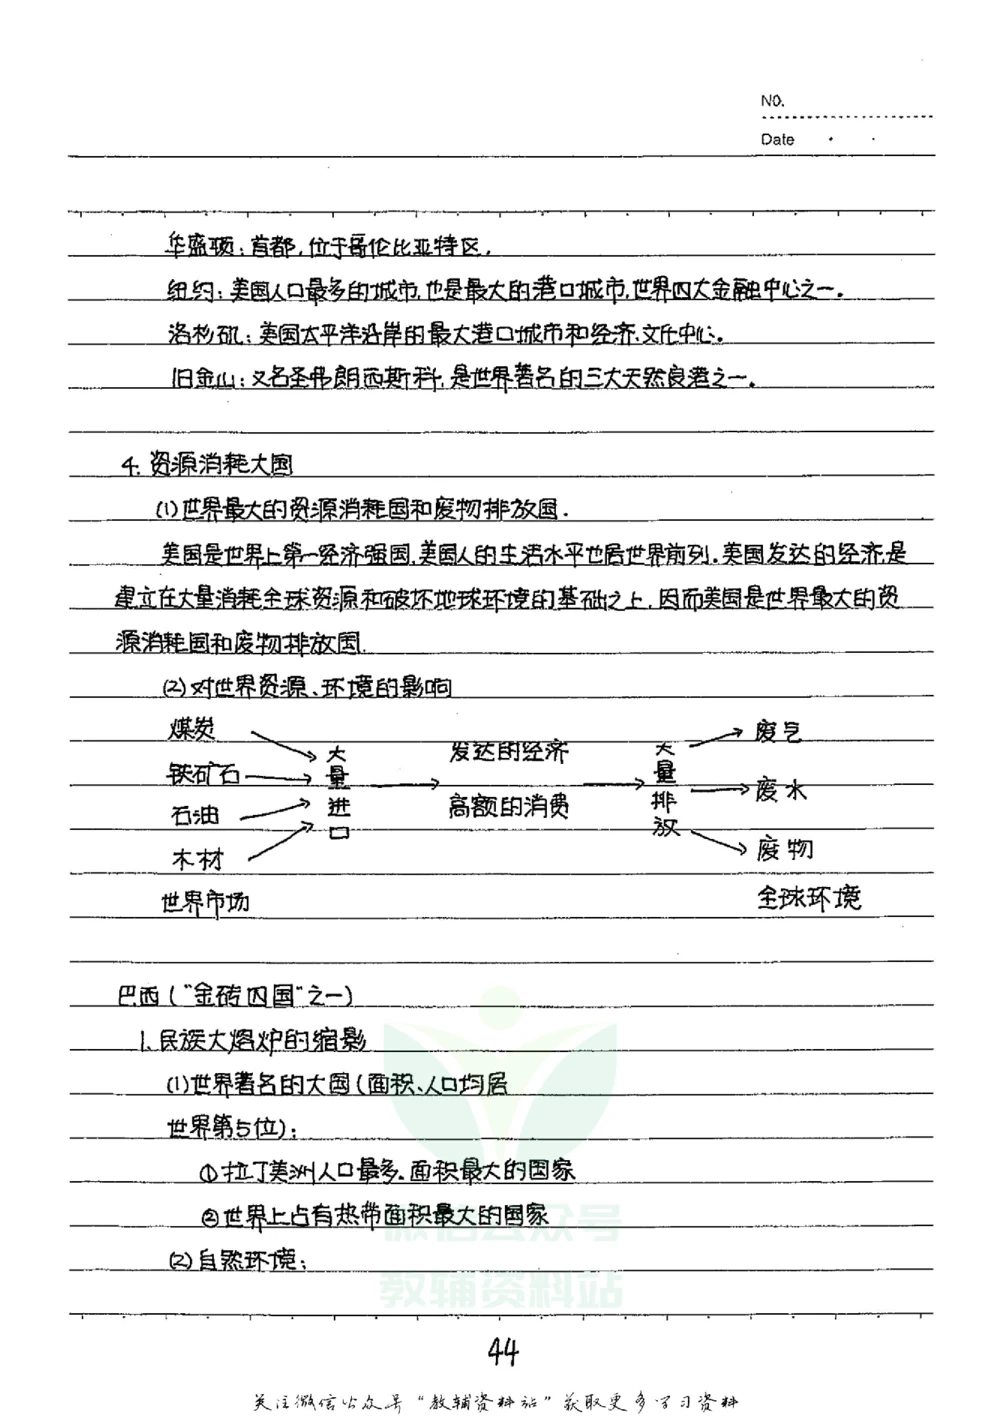 NO.
Date
华盛顿：首都，位于哥伦比亚特区．
纽约：美国人口最多的城市，也是最大的港口城市，世界四大金融中心之一。
洛杉矶：美国太平洋沿岸的最大港口城市和经济、文化中心。
旧金山：又名圣弗朗西斯科，是世界著名的三大天然良港之一。
4. 资源消耗大国
(1)世界最大的资源消耗国和废物排放国．
美国是世界上第一经济强国，美国人的生活水平也居世界前列．美国发达的经济，是
建立在大量消耗全球资源和破坏地球环境的基础之上，因而美国是世界最大的资
源消耗国和废物排放国．
(2)对世界资源、环境的影响
煤炭
铁矿石
石油
木材
世界市场
大量进口
发达的经济
高额的消费
大量排放
废气
废水
废物
全球环境
巴西（“金砖四国”之一）
1. 民族大熔炉的缩影
(1)世界著名的大国（面积、人口均居
世界第5位）：
①拉丁美洲人口最多、面积最大的国家
②世界上占有热带面积最大的国家
(2)自然环境：
微信公众号
教辅资料站
44
关注微信公众号“教辅资料站”获取更多学习资料